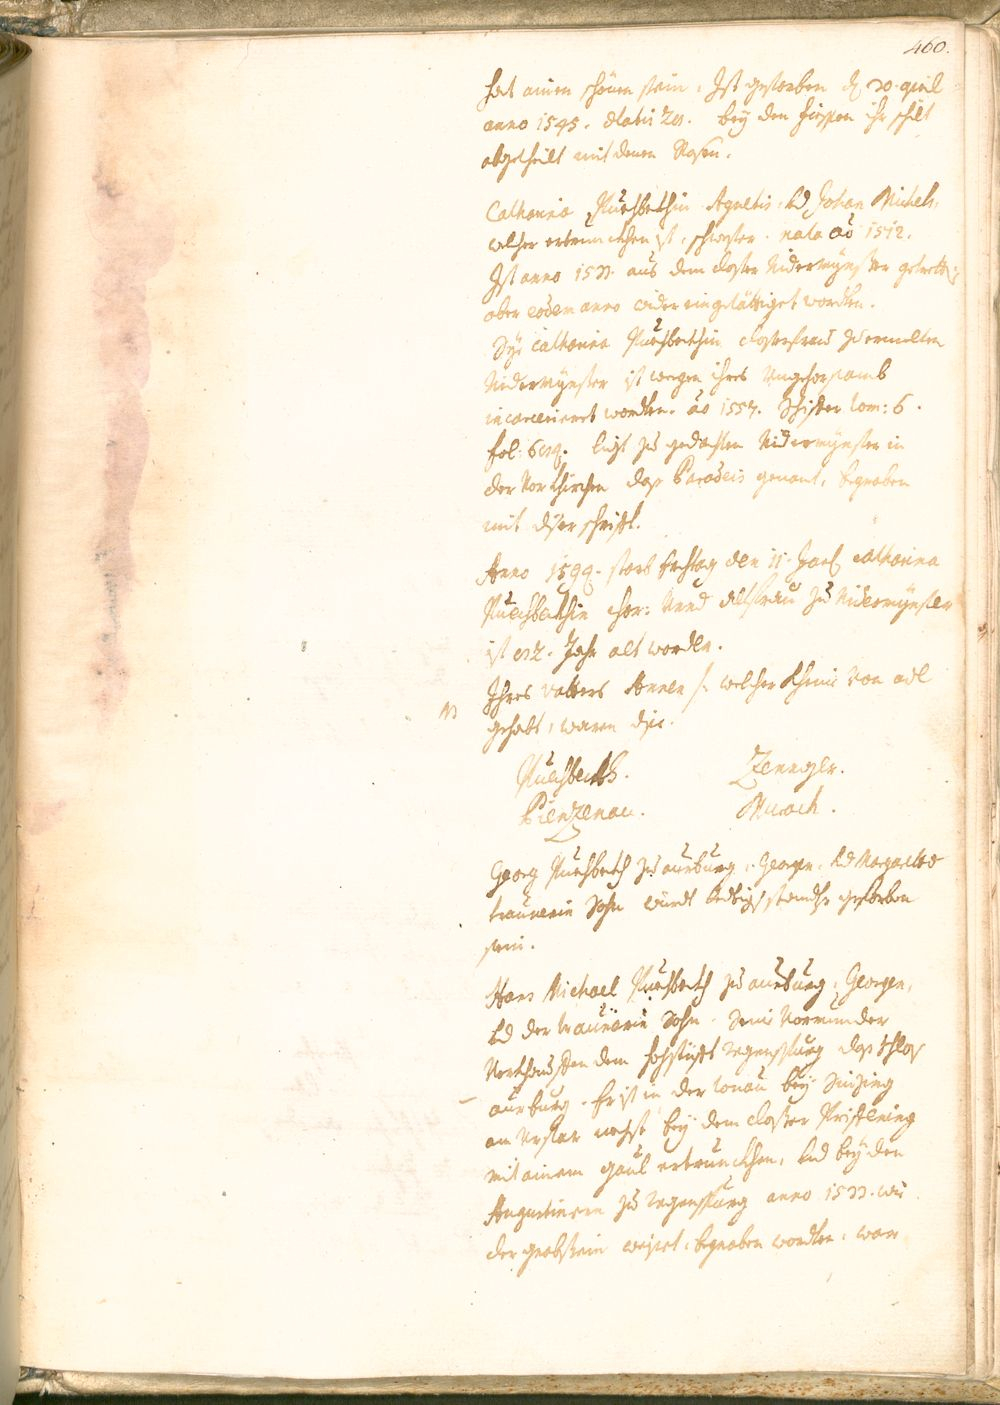 460.
hat einen schönen stein, Ist gestorben den 20. april
anno 1545. aetatis 20. bey den füessen ihr schilt
abgetheilt mit denen Rosen.
Catharina Puechbekhin Agnetis, und Johan Michels,
welcher ertrunckhen ist, schwester. nata ao 1512.
Ist anno 1533. aus dem closter Nidermünster getretten,
aber eodem anno wider eingetädtiget worden.
Dise Catharina Puechbekhin closterfrau zu ermelten
Nidermünster ist wegen ihres Ungehorsamb
incarcerieret worden. ao 1557. Schifter tom: 6.
fol: ligt zu gedachten Nidermünster in
der Vorkhirchen das Paradeis genant, begraben
mit diser schrifft.
Anno 1599. starb Erchtag den 11. Catharina
Puechbekhin chor: Unnd altfrau zu Nidermünster
ist Jahr alt worden.
Ihres vatters Annen welcher kheine Von adl
gehabt, waren dise.
Puechbekh. Zennger.
Pienzenau. Murach.
Georg Puechbekh zu aurburg, Georgen, und Margaretae
traunerin Sohn würdt ledigs standts gestorben
sein.
Hans Michael Puechbekh zu aurburg, Georgen,
und der traunerin Sohn. Seine Vormunder
Verkhaufften dem hochstüfft regenspurg das schlos
aurburg. Er ist in der Tonau bey Sinzing
am Urfar nechst bey dem closter Prifflening
mit einem gaul ertrunckhen, und bey den
Augustinern zu regenspurg anno 1533. wie
der grabstein weiset, begraben worden, war